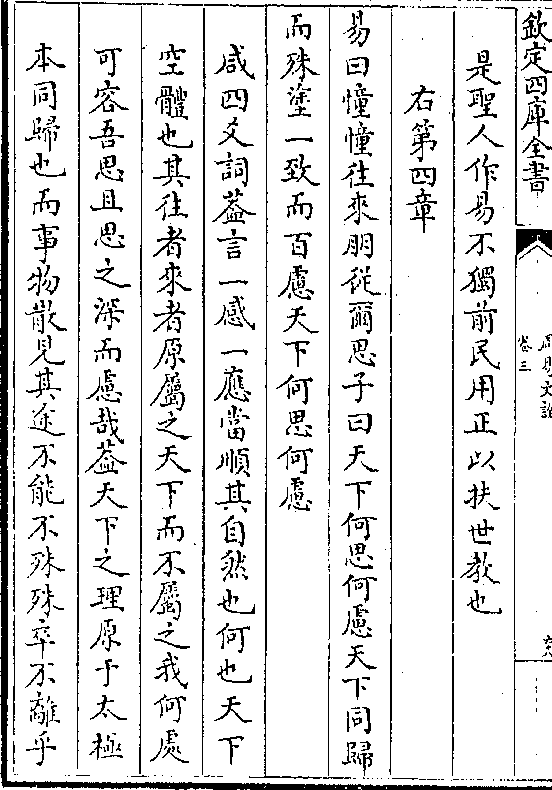 欽定四庫全書
卷三
是聖人作易不獨前民用正以扶世教也
右第四章
易曰憧憧往來朋從爾思子曰天下何思何慮天下同歸
而殊塗一致而百慮天下何思何慮
咸四爻詞葢言一感一應當順其自然也何也天下
空體也其往者來者原屬之天下而不屬之我何處
可容吾思且思之深而慮哉葢天下之理原于太極
本同歸也而事物散見其途不能不殊殊卒不離乎